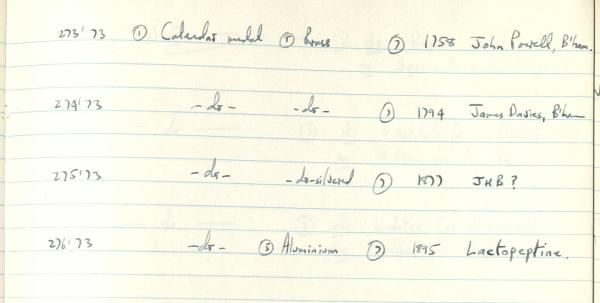 273'73 ① Calendar medal ⑤ Brass ⑦ 1758 John Powell, B'ham.
274'73 -do- -do- ⑦ 1794 James Davies, B'ham
275'73 -do- -do-silvered ⑦ 1877 JHB?
276'73 -do- ⑤ Aluminium ⑦ 1895 Lactopeptine.